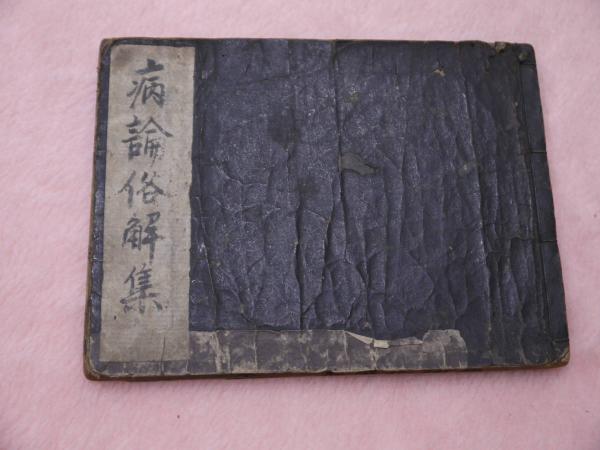 病論俗解集